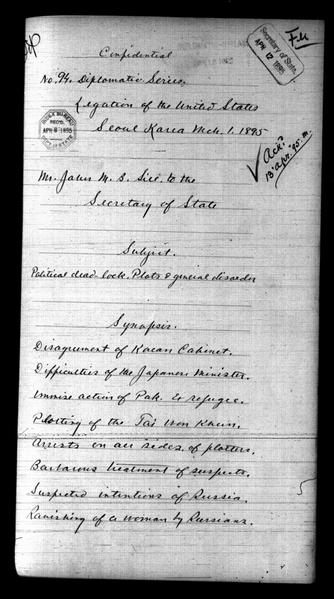 Confidential
No. 94. Diplomatic Series
Legation of the United States
Seoul Korea Mch. 1. 1895
Mr. John M. B. Sill to the
Secretary of State
Subject.
Political dead lock, Plots & general disorder
Synopsis.
Disagreement of Korean Cabinet.
Difficulties of the Japanese Minister.
Unwise action of Pak Ex refugee.
Plotting of the Tai Won Khun.
Arrests on all sides of plotters.
Barbarous treatment of suspects.
Suspected intentions of Russia.
Ravishing of a woman by Russians.
Secretary of State
APR 12 1895
F.M
INDEX BUREAU
REC'D.
APR 8 1895
DEPT. OF STATE
Ack'd
13 Apr. '95
5